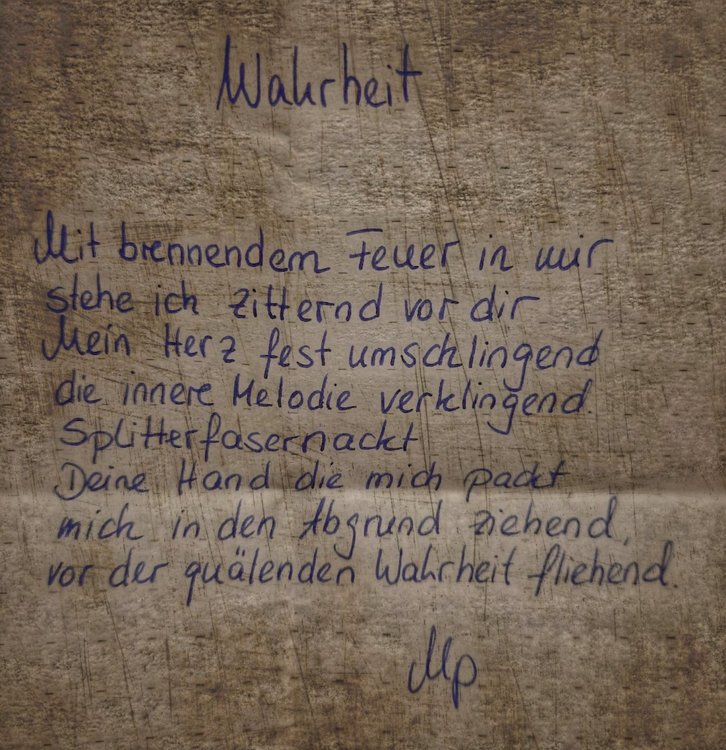 Wahrheit
Mit brennendem Feuer in mir
stehe ich zitternd vor dir
Mein Herz fest umschlingend
die innere Melodie verklingend.
Splitterfasernackt
Deine Hand die mich packt,
mich in den Abgrund ziehend,
vor der quälenden Wahrheit fliehend.
Mp